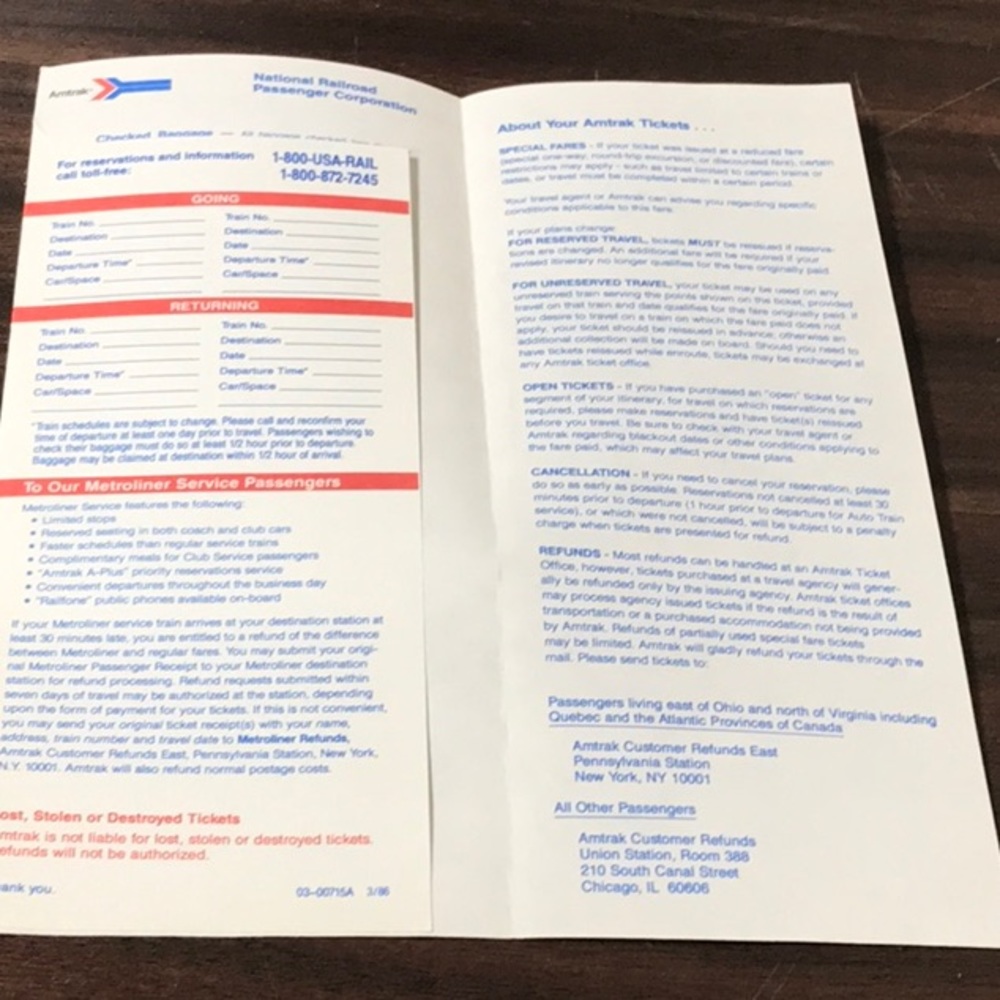 Amtrak
National Railroad
Passenger Corporation
Checked Baggage — All baggage checked
For reservations and information
call toll-free:
1-800-USA-RAIL
1-800-872-7245
GOING
Train No. Train No.
Destination Destination
Date Date
Departure Time* Departure Time*
Car/Space Car/Space
RETURNING
Train No. Train No.
Destination Destination
Date Date
Departure Time* Departure Time*
Car/Space Car/Space
*Train schedules are subject to change. Please call and reconfirm your
time of departure at least one day prior to travel. Passengers wishing to
check their baggage must do so at least 1/2 hour prior to departure.
Baggage may be claimed at destination within 1/2 hour of arrival.
To Our Metroliner Service Passengers
Metroliner Service features the following:
• Limited stops
• Reserved seating in both coach and club cars
• Faster schedules than regular service trains
• Complimentary meals for Club Service passengers
• "Amtrak A-Plus" priority reservations service
• Convenient departures throughout the business day
• "Railfone" public phones available on-board
If your Metroliner service train arrives at your destination station at
least 30 minutes late, you are entitled to a refund of the difference
between Metroliner and regular fares. You may submit your origi-
nal Metroliner Passenger Receipt to your Metroliner destination
station for refund processing. Refund requests submitted within
seven days of travel may be authorized at the station, depending
upon the form of payment for your tickets. If this is not convenient,
you may send your original ticket receipt(s) with your name,
address, train number and travel date to Metroliner Refunds,
Amtrak Customer Refunds East, Pennsylvania Station, New York,
N.Y. 10001. Amtrak will also refund normal postage costs.
ost, Stolen or Destroyed Tickets
mtrak is not liable for lost, stolen or destroyed tickets.
efunds will not be authorized.
ank you.
03-00715A 3/86
About Your Amtrak Tickets . . .
SPECIAL FARES - If your ticket was issued at a reduced fare
(special one-way, round-trip excursion, or discounted fare), certain
restrictions may apply - such as travel limited to certain trains or
dates, or travel must be completed within a certain period.
Your travel agent or Amtrak can advise you regarding specific
conditions applicable to this fare.
If your plans change:
FOR RESERVED TRAVEL, tickets MUST be reissued if reserva-
tions are changed. An additional fare will be required if your
revised itinerary no longer qualifies for the fare originally paid.
FOR UNRESERVED TRAVEL, your ticket may be used on any
unreserved train serving the points shown on the ticket, provided
travel on that train and date qualifies for the fare originally paid. If
you desire to travel on a train on which the fare paid does not
apply, your ticket should be reissued in advance; otherwise an
additional collection will be made on board. Should you need to
have tickets reissued while enroute, tickets may be exchanged at
any Amtrak ticket office.
OPEN TICKETS - If you have purchased an "open" ticket for any
segment of your itinerary, for travel on which reservations are
required, please make reservations and have ticket(s) reissued
before you travel. Be sure to check with your travel agent or
Amtrak regarding blackout dates or other conditions applying to
the fare paid, which may affect your travel plans.
CANCELLATION - If you need to cancel your reservation, please
do so as early as possible. Reservations not cancelled at least 30
minutes prior to departure (1 hour prior to departure for Auto Train
service), or which were not cancelled, will be subject to a penalty
charge when tickets are presented for refund.
REFUNDS - Most refunds can be handled at an Amtrak Ticket
Office, however, tickets purchased at a travel agency will gener-
ally be refunded only by the issuing agency. Amtrak ticket offices
may process agency issued tickets if the refund is the result of
transportation or a purchased accommodation not being provided
by Amtrak. Refunds of partially used special fare tickets
may be limited. Amtrak will gladly refund your tickets through the
mail. Please send tickets to:
Passengers living east of Ohio and north of Virginia including
Quebec and the Atlantic Provinces of Canada
Amtrak Customer Refunds East
Pennsylvania Station
New York, NY 10001
All Other Passengers
Amtrak Customer Refunds
Union Station, Room 388
210 South Canal Street
Chicago, IL 60606